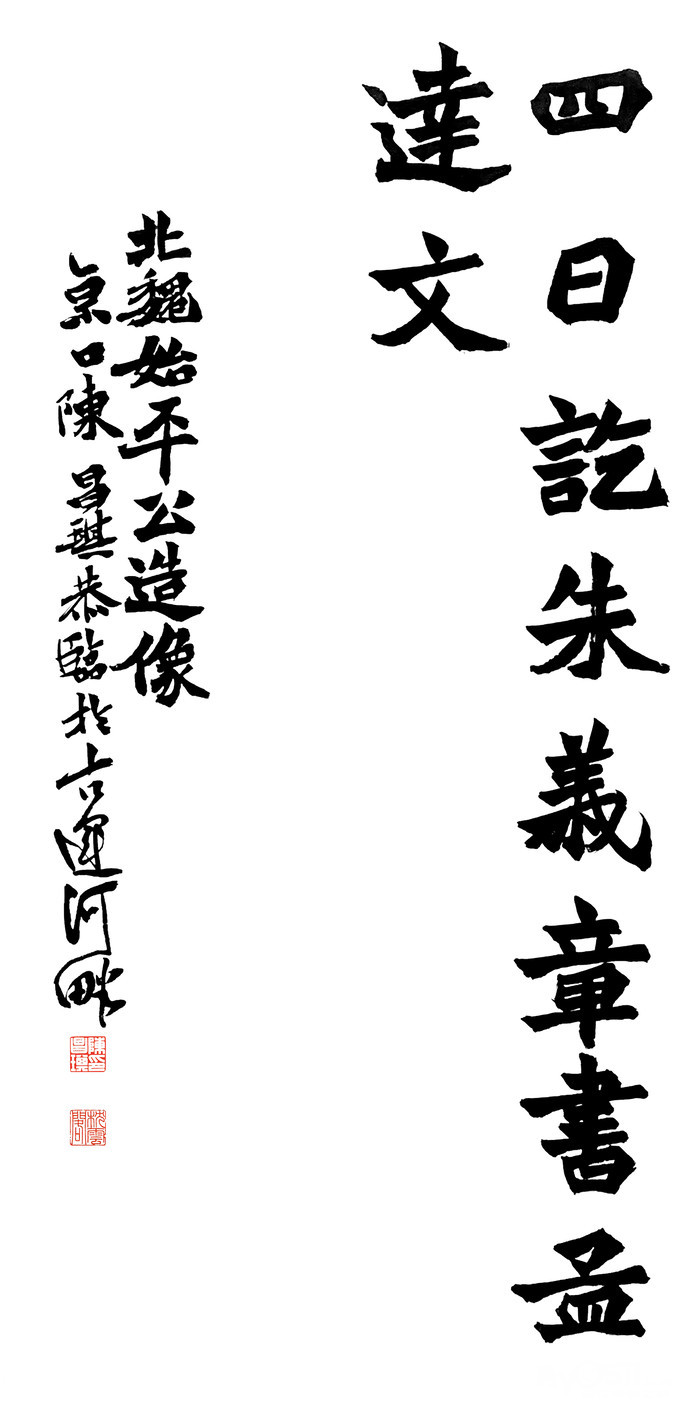 四日訖朱義章書孟
達文
北魏始平公造像
京口陳昌琪恭臨於古運河畔
陳昌琪印
枕雲閣